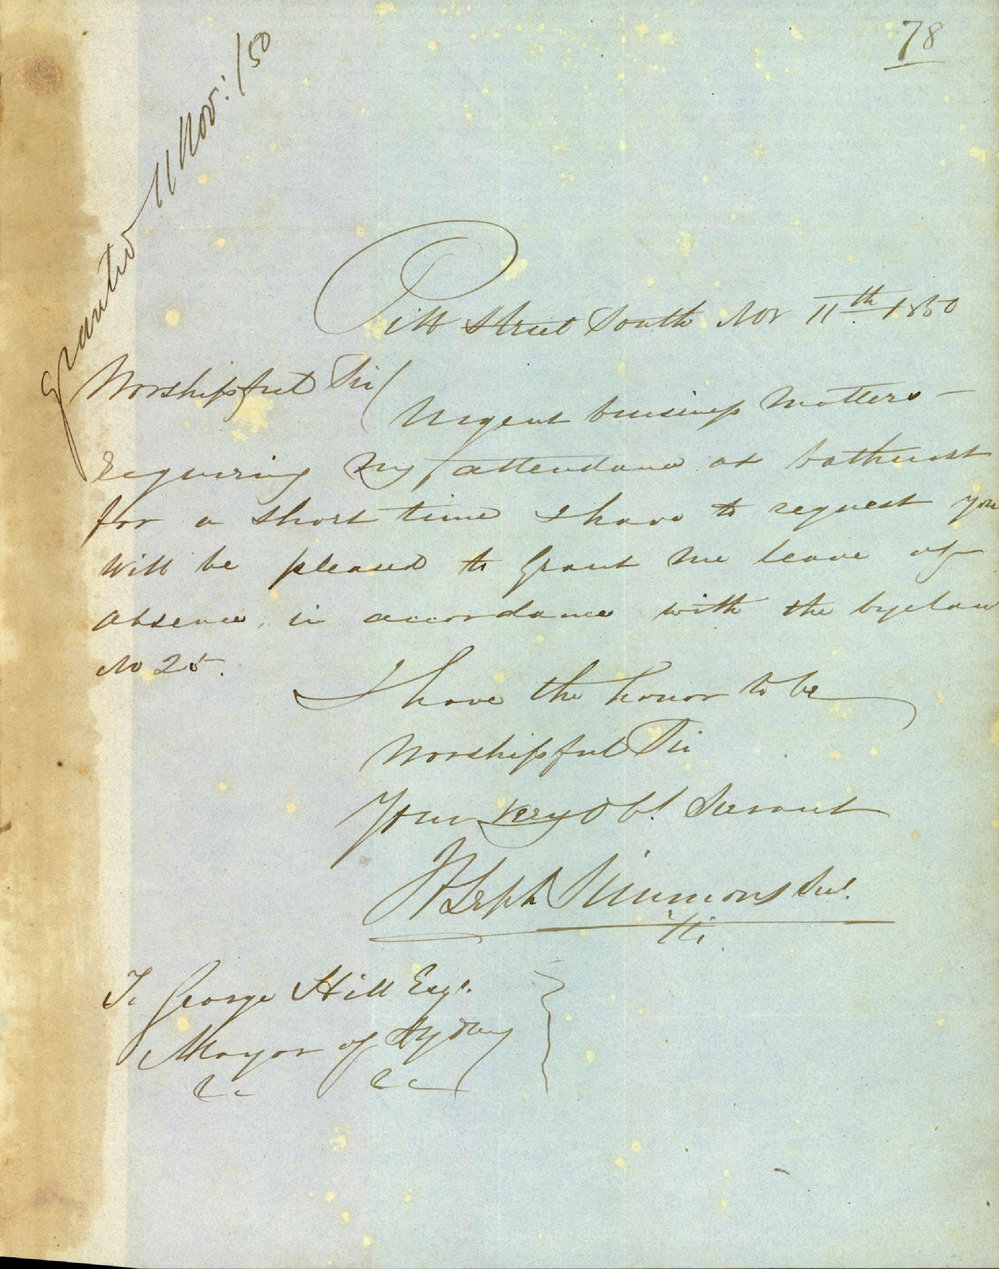 78
Granted 11 Nov: /50
Pitt Street South Nov 11th 1850
Worshipful Sir
Urgent business Matters
requiring my attendance at bathurst
for a short time I have to request you
will be pleased to Grant me leave of
absence, in accordance with the byelaw
No 25.
I have the honor to be
Worshipful Sir
Your very Obt. Servant
Joseph Simmons
To George Hill Esqr.
Mayor of Sydney
&c &c